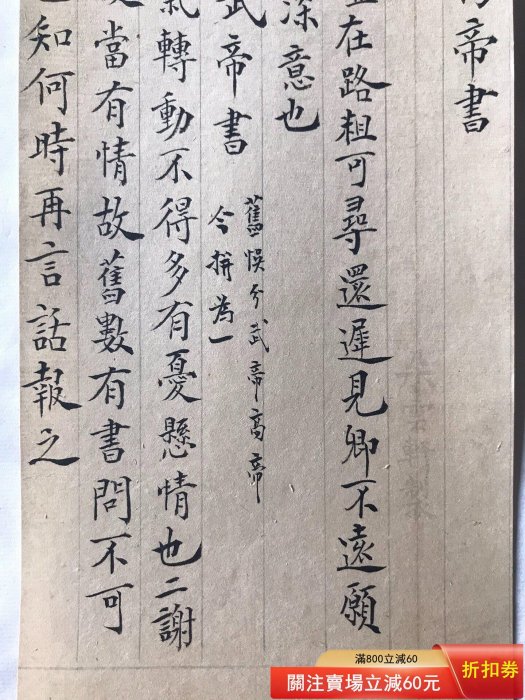 帝書
在路租可尋還遲見卿不遠願
深意也
武帝書
舊悮分武帝高帝
今拼為一
轉動不得多有憂懸情也二謝
當有情故舊數有書問不可
知何時再言話報之
滿800立減60
關注賣場立減60元
折扣券